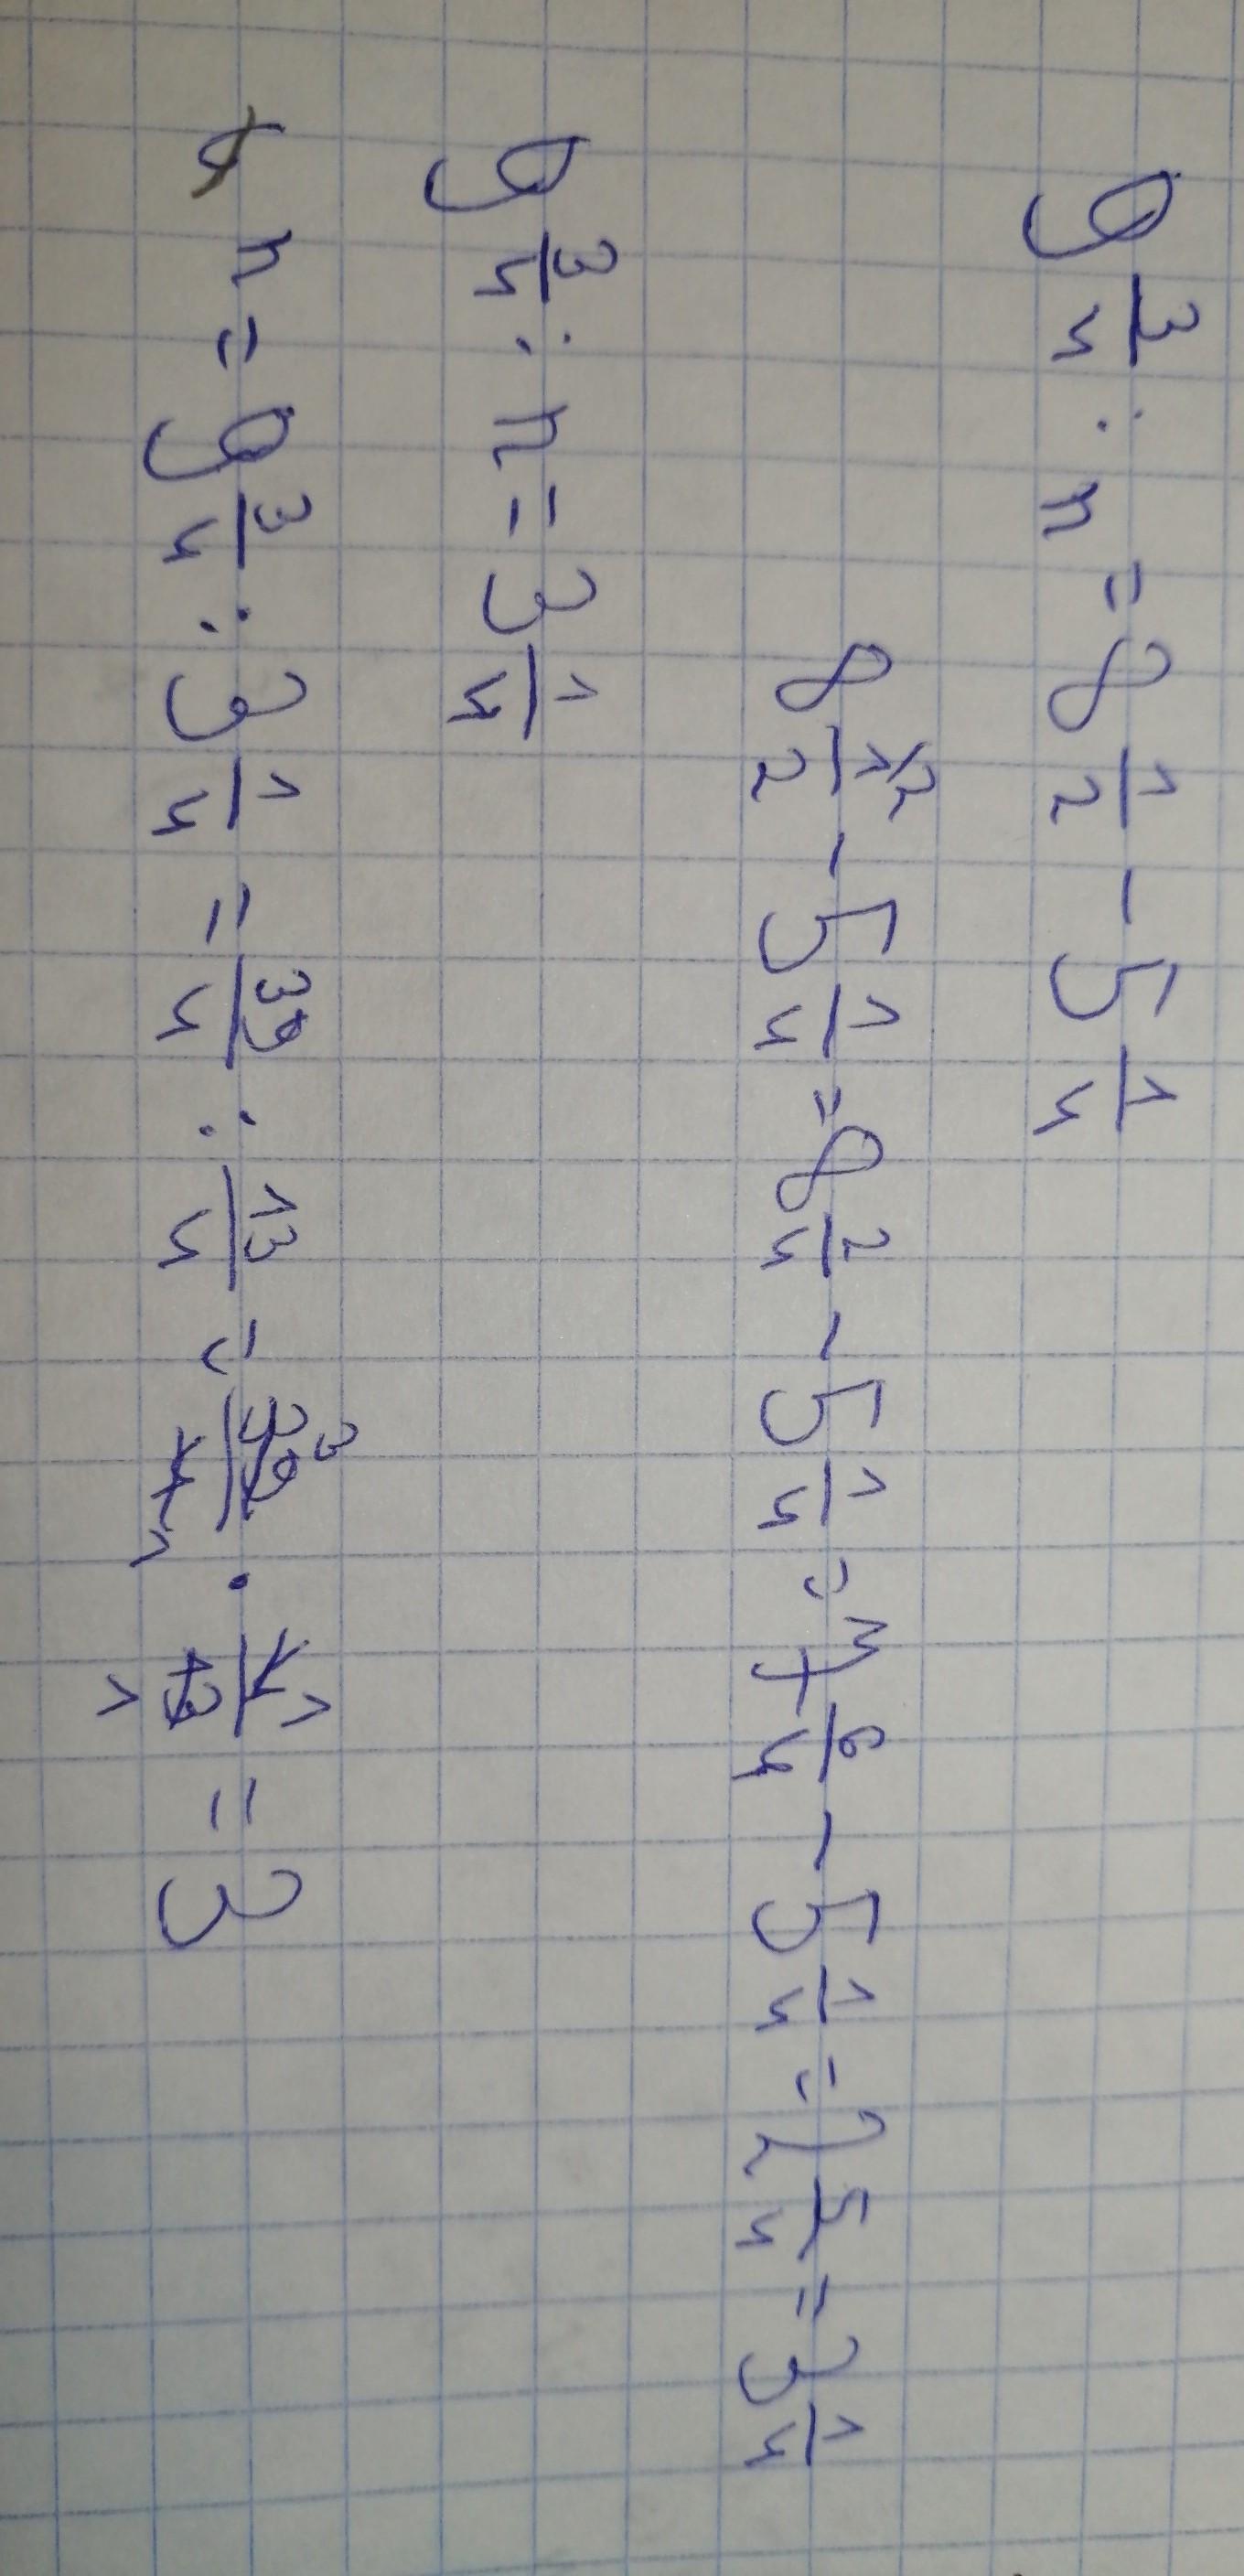 9 3/4 : n = 8 1/2 - 5 1/4
8 1\2/2 - 5 1/4 = 8 2/4 - 5 1/4 = 7 6/4 - 5 1/4 = 2 5/4 = 3 1/4
9 3/4 : n = 3 1/4
n = 9 3/4 : 3 1/4 = 39/4 : 13/4 = 39 3/4 1 · 4 1/13 1 = 3